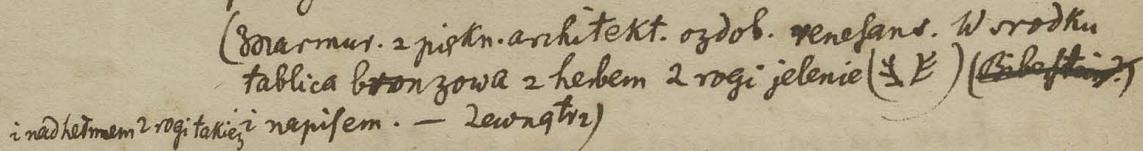 (Marmur. z piękn. architekt. ozdob. renesans. W srodku
tablica bronzowa z herbem 2 rogi jelenie ( ) (
i nad hełmem 2 rogi takież i napisem. — Zewnątrz)